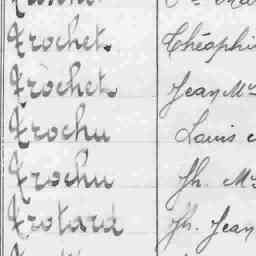 Trochet Théophi
Trochet Jean Mie
Trochu Louis
Trochu Jh. M
Trotard Jh. Jean